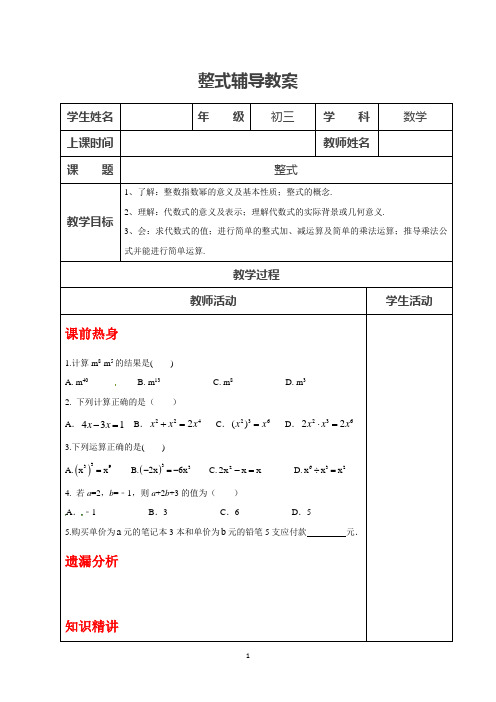 整式辅导教案
学生姓名 年 级 初三 学 科 数学
上课时间 教师姓名
课 题 整式
教学目标
1、了解：整数指数幂的意义及基本性质；整式的概念.
2、理解：代数式的意义及表示；理解代数式的实际背景或几何意义.
3、会：求代数式的值；进行简单的整式加、减运算及简单的乘法运算；推导乘法公
式并能进行简单运算.
教学过程
教师活动 学生活动
课前热身
1.计算 m⁸·m⁵的结果是( )
A. m⁴⁰ , B. m¹³ C. m⁸ D. m³
2. 下列计算正确的是（ ）
A． 4x－3x＝1 B． x²＋x²＝2x⁴ C． (x²)³＝x⁶ D． 2x²·x³＝2x⁶
3.下列运算正确的是( )
B.(-2x)³=-6x³ C.2x²-x=x D.x⁶÷x³=x²
4. 若 a=2，b=﹣1，则 a+2b+3 的值为（ ）
A．.﹣1 B．3 C．6 D．5
5.购买单价为 a 元的笔记本 3 本和单价为 b 元的铅笔 5 支应付款 元．
遗漏分析
知识精讲
1